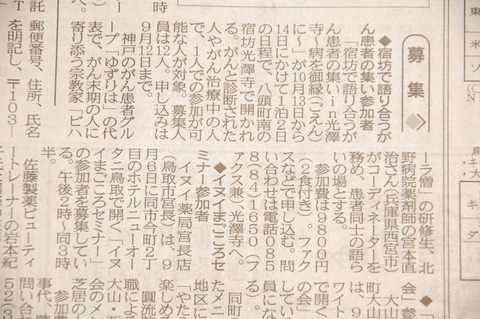 募集
◆宿坊で語り合うが
ん患者の集い参加者
「宿坊で語り合うが
ん患者の集いin光澤
寺〜病を御縁(ごえん)
に〜」が10月13日から
14日にかけて1泊2日
の日程で、八頭町南の
宿坊光澤寺で開かれ
る。がんと診断された
人やがん治療中の人
で、1人での参加が可
能な人が対象。募集人
員は12人。申し込みは
9月12日まで。
神戸のがん患者グル
ープ「ゆずりは」の代
表で、がん末期の人に
寄り添う宗教家「ビハ
ーラ僧」の研修生、北
野病院薬剤師の宮本直
治さん(兵庫県西宮市)
がコーディネーターを
務め、患者同士の語ら
いの場とする。
参加費は9800円
(2食付き)。ファク
スなどで申し込む。問
い合わせは電話085
8(84)1650(フ
ァクス兼)光澤寺へ。
◆イヌイまごころセ
ミナー参加者
イヌイ薬局宮長店
(鳥取市宮長)は、9
月6日に同市今町2丁
目のホテルニューオー
タニ鳥取で開く「イヌ
イまごころセミナー」
の参加者を募集してい
る。午後2時〜同3時
半。
佐藤製薬ビューティ
ートレーナーの岩本紀
◆「
会」参
町大山
大山町
ワイト
で開く
してい
員にな
同町の
地区に
たメニ
「やた
楽しめる
圓流
職によ
大山・西
会のメン
芝居の
参加費
事代、
問い合
523
郵便番号、住所、氏名
を明記し、〒103―